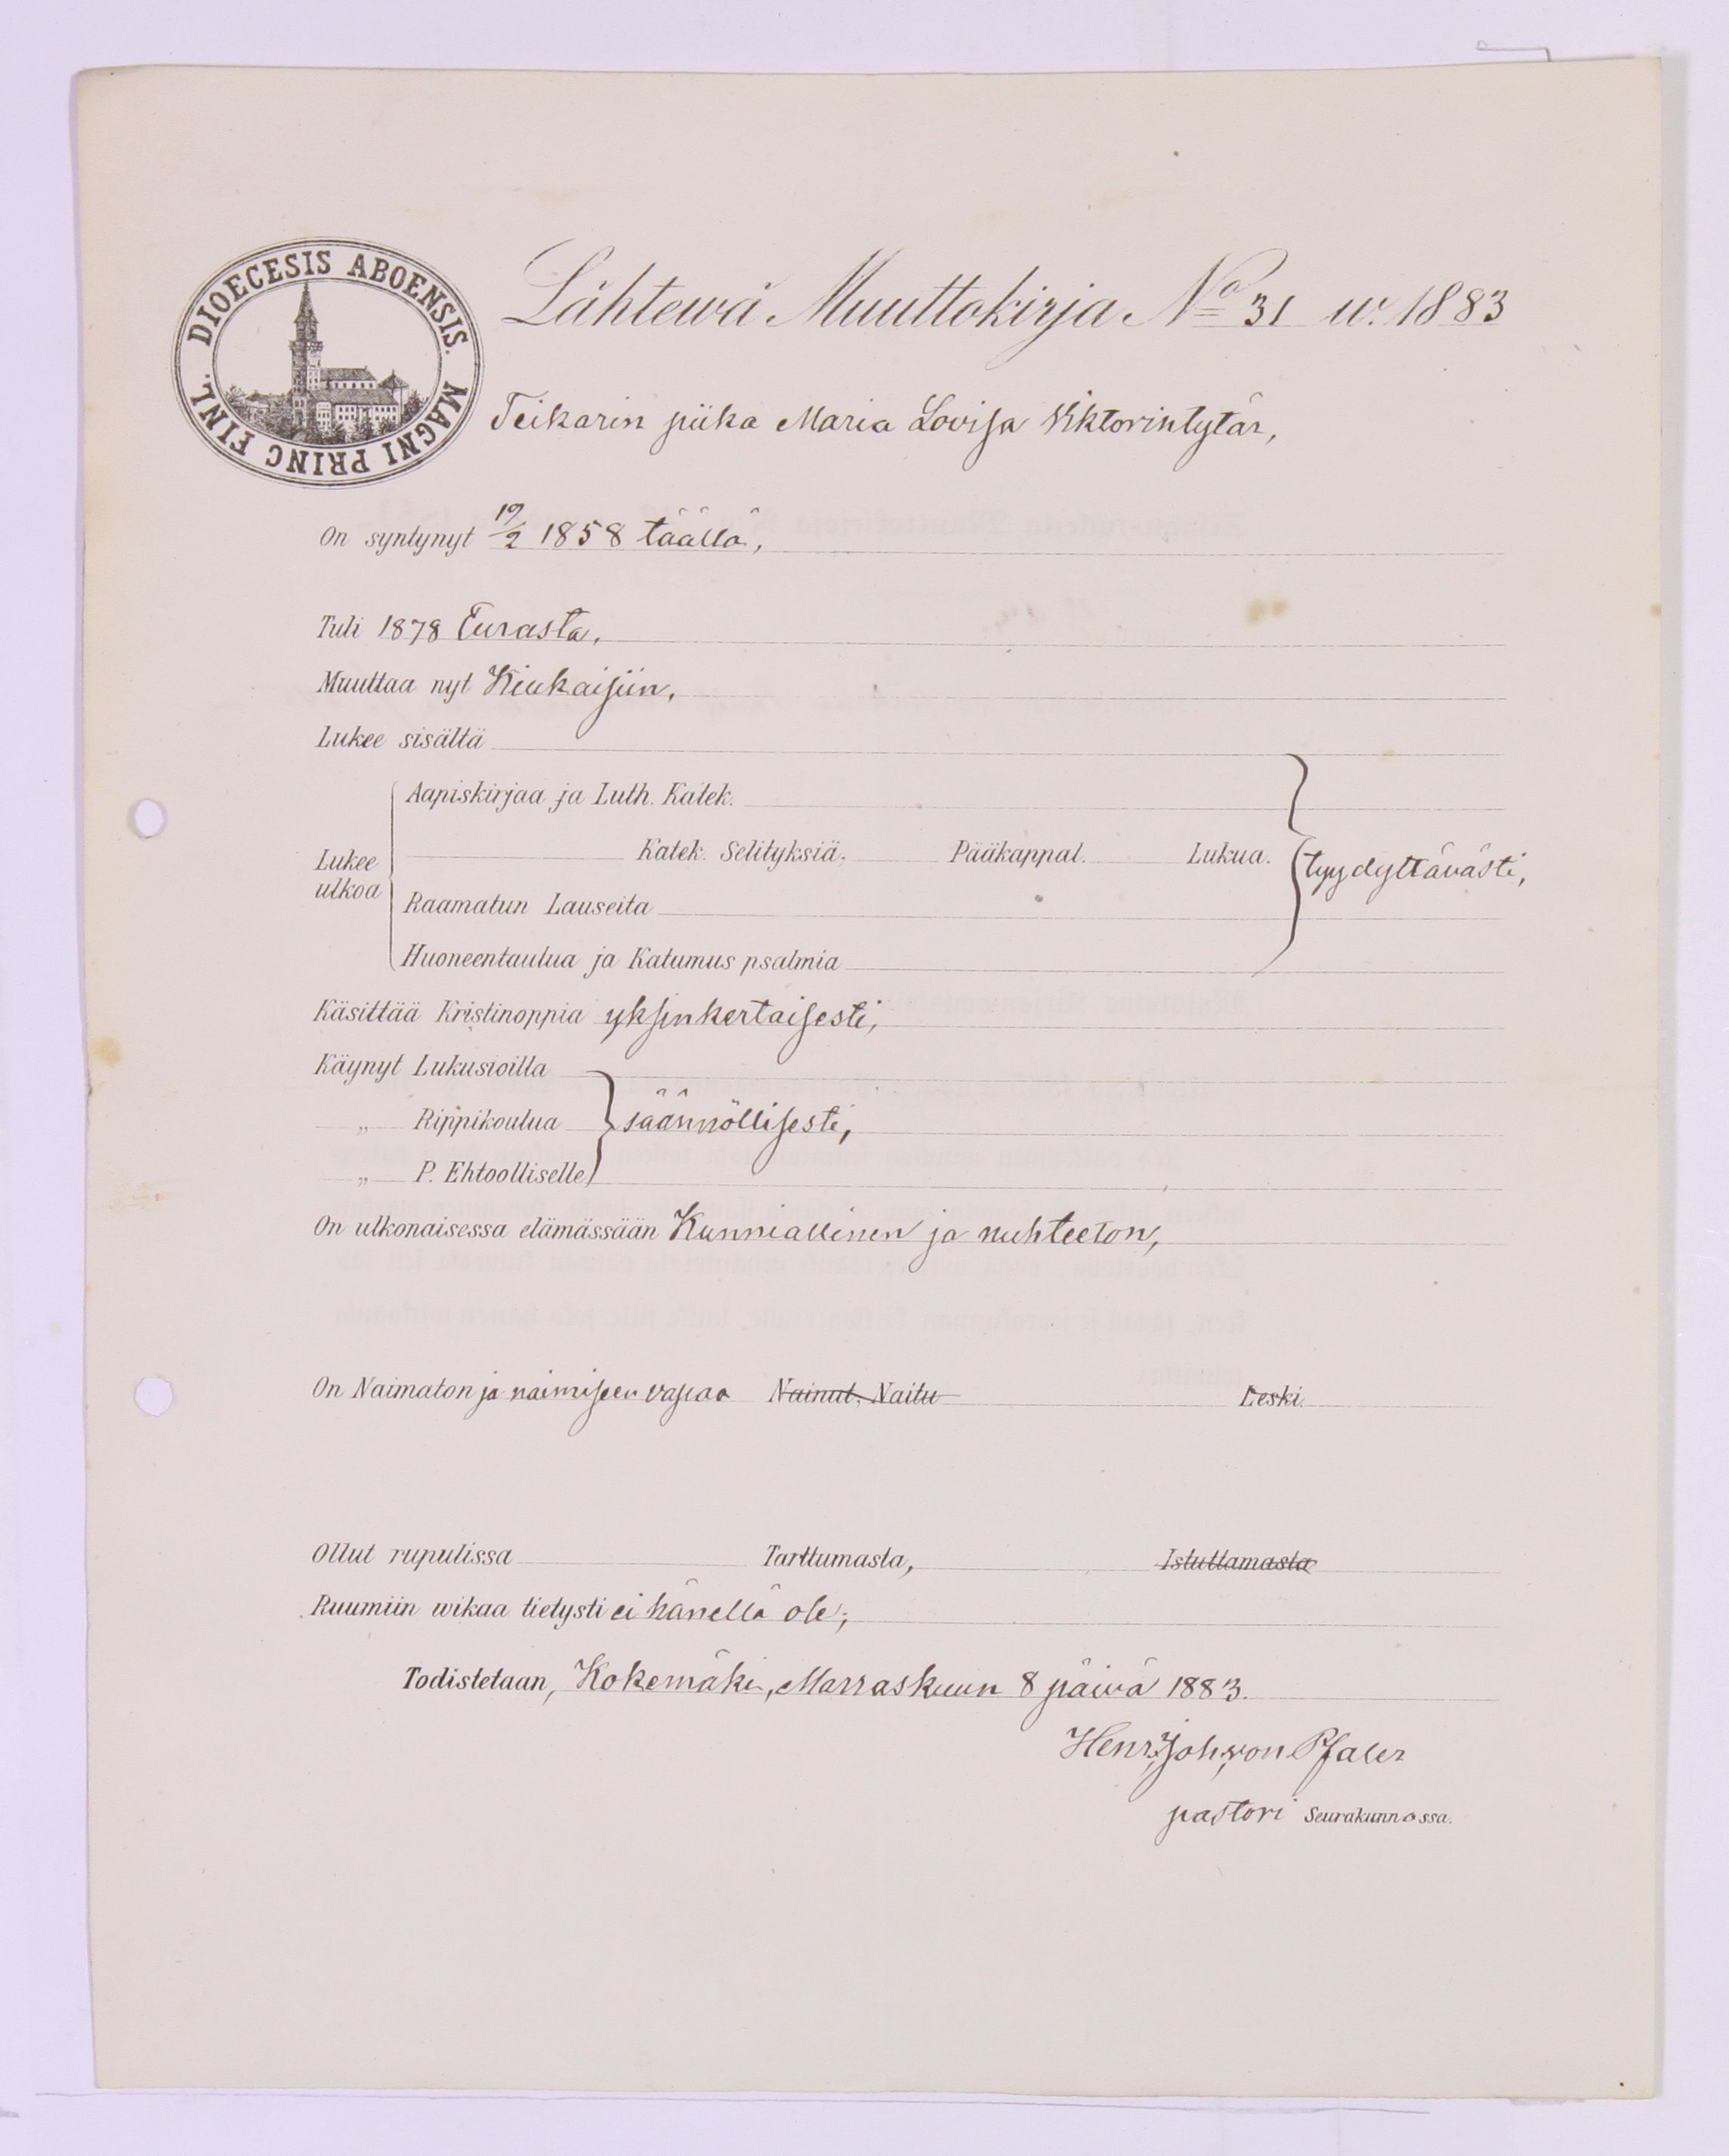 DIOECESIS ABOENSIS. MAGNI PRINC FINL.
Lähtewä Muuttokirja No 31 w. 1883
Teikarin piika Maria Lovisa Viktorintytär,
On syntynyt 19/2 1858 täällä,
Tuli 1878 Eurasta,
Muuttaa nyt Kiukaisiin,
Lukee sisältä
Lukee ulkoa
Aapiskirjaa ja Luth. Katek.
Katek. Selityksiä, Pääkappal. Lukua. tyydyttävästi,
Raamatun Lauseita
Huoneentaulua ja Katumus psalmia
Käsittää Kristinoppia yksinkertaisesti,
Käynyt Lukusioilla
„ Rippikoulua säännöllisesti,
„ P. Ehtoolliselle
On ulkonaisessa elämässään Kunniallinen ja nuhteeton,
On Naimaton ja naimiseen vapaa Nainut, Naitu Leski.
Ollut rupulissa Tarttumasta, Istuttamasta
Ruumiin wikaa tietysti ei hänellä ole;
Todistetaan, Kokemäki, Marraskuun 8 päivä 1883.
Henr. Joh. von Pfaler
pastori Seurakunnassa.